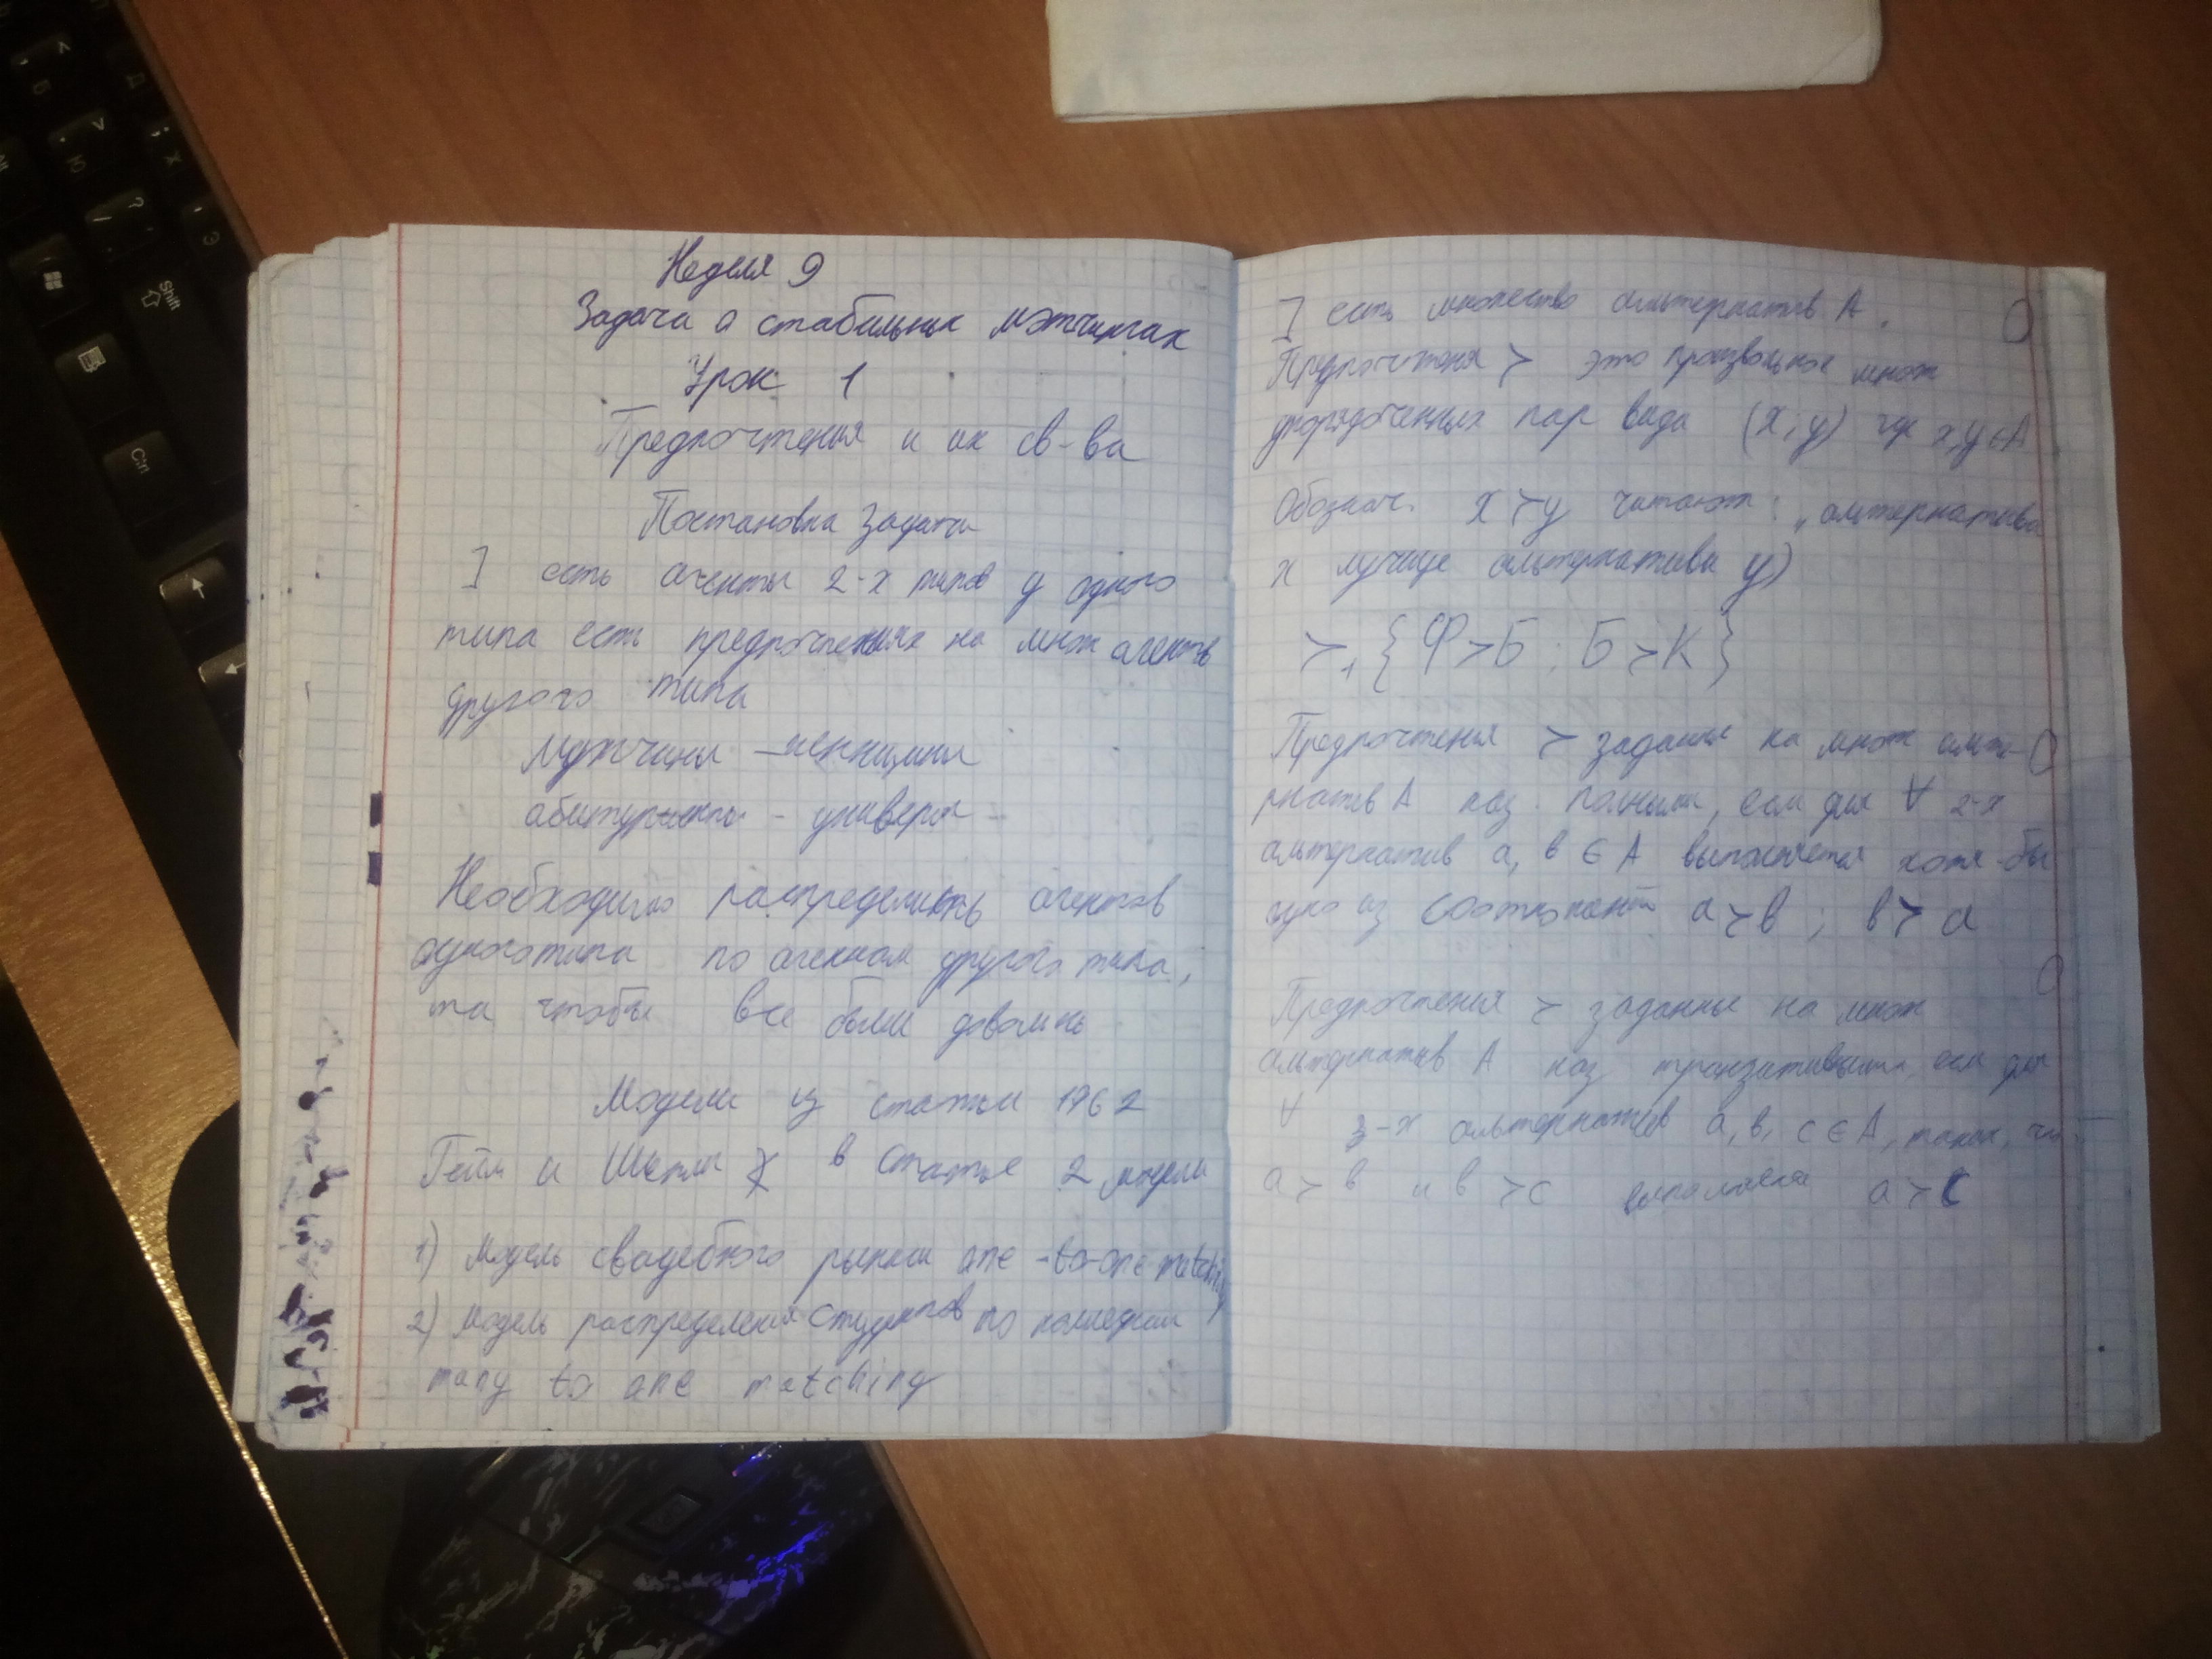 Неделя 9
Задача о стабильных мэтчингах
Урок 1
Предпочтения и их св-ва
Постановка задачи
] есть агенты 2-х типов у одного
типа есть предпочтения на множ агентов
другого типа
мужчины - женщины
абитуриенты - универы
Необходимо распределить агентов
одного типа по агентам другого типа,
та чтобы все были довольны
Модели из статьи 1962
Гейл и Шепли в статье 2 модели
1) Модель свадебного рынка one-to-one matching
2) Модель распределения студентов по колледжам
many to one matching
] есть множество альтернатив A.
Предпочтения ≻ это произвольное множ
упорядоченных пар вида (x; y) где x,y ∈ A
Обознач. x ≻ y читают: „альтернатива
x лучше альтернативы y)
≻₁ { Ф ≻ Б ; Б ≻ К }
Предпочтения ≻ заданные на множ альте-
рнатив A наз. полными, если для ∀ 2-х
альтернатив a, b ∈ A выполняется хотя-бы
одно из соотношений a ≻ b ; b ≻ a
Предпочтения ≻ заданные на множ
альтернатив A наз транзитивными, если для
∀ 3-х альтернатив a, b, c ∈ A, таких, что
a ≻ b и b ≻ c выполняется a ≻ c
Shift
Ctrl